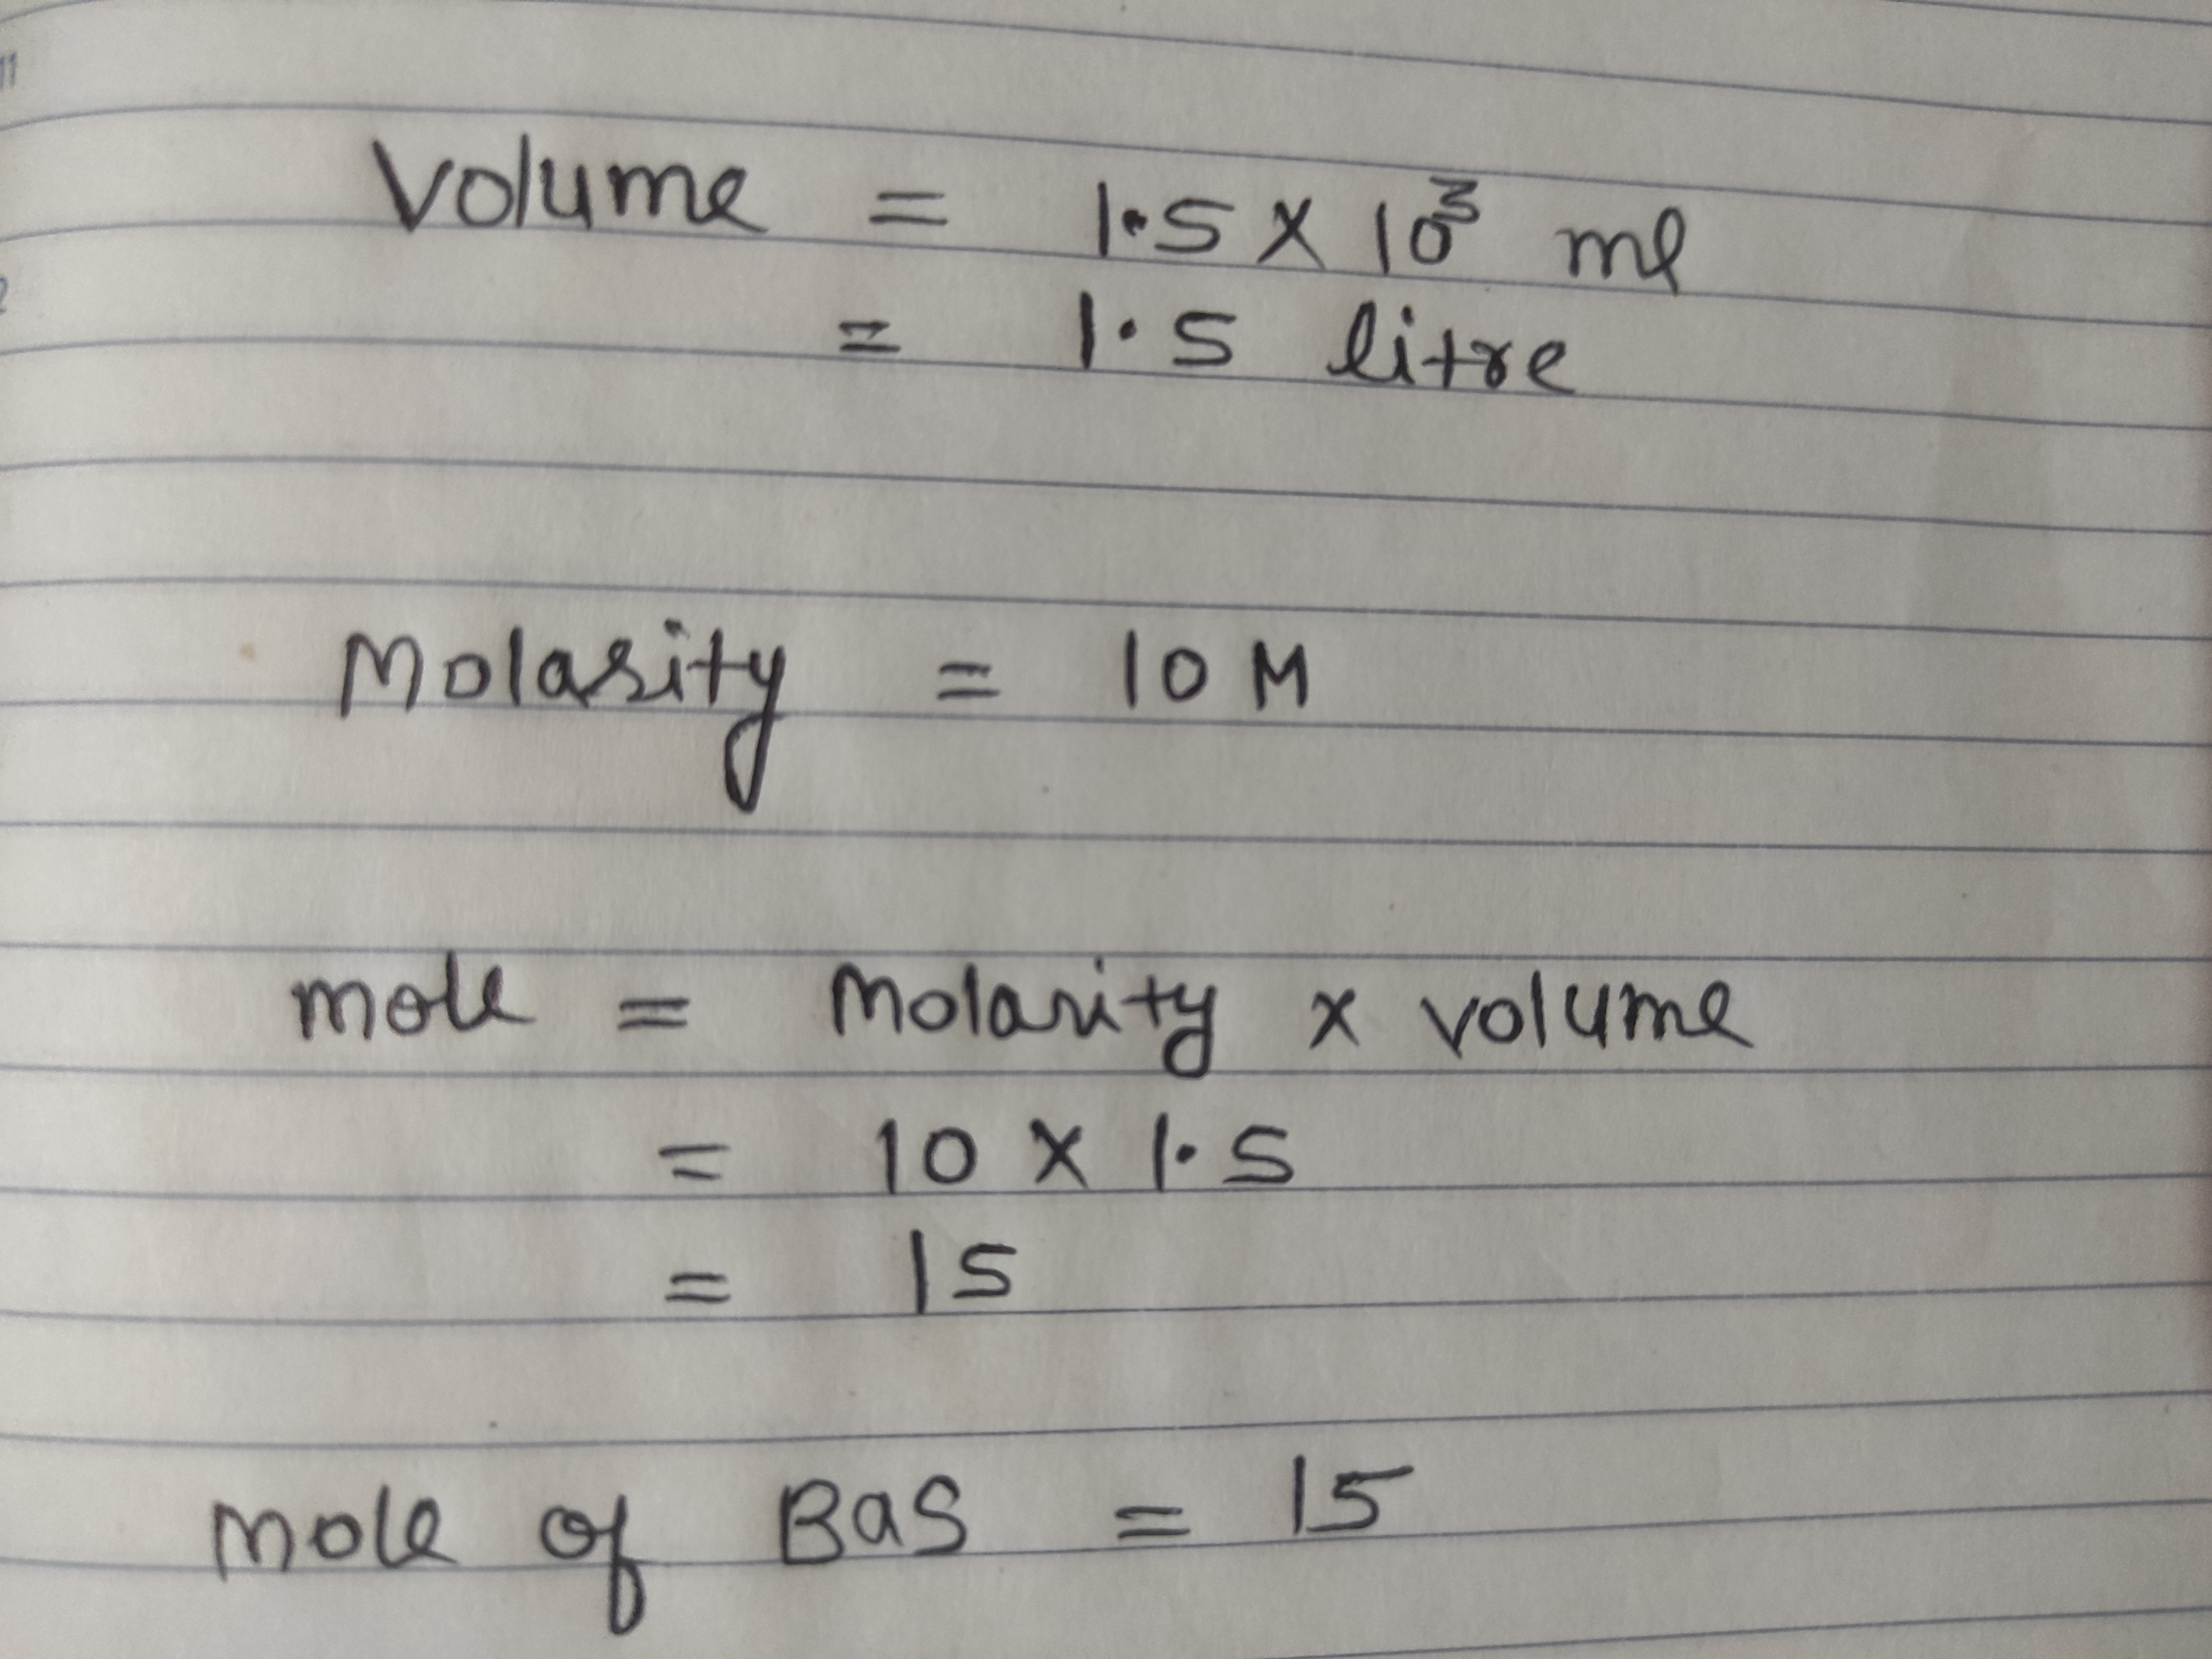 11
Volume = 1.5 x 10³ ml
2
= 1.5 litre
Molarity = 10 M
mole = Molarity x volume
= 10 x 1.5
= 15
Mole of BaS = 15